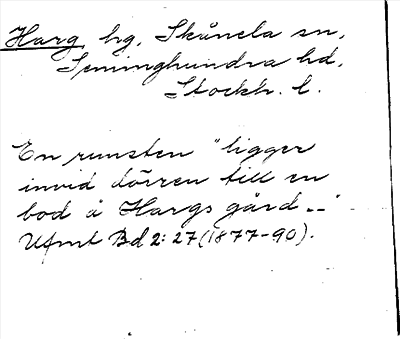 Harg hg, Skånela sn,
Seminghundra hd,
Stockh. l.
En runsten "ligger
invid dörren till en
bod å Hargs gård --"
Ufmt Bd 2: 27 (1877-90).